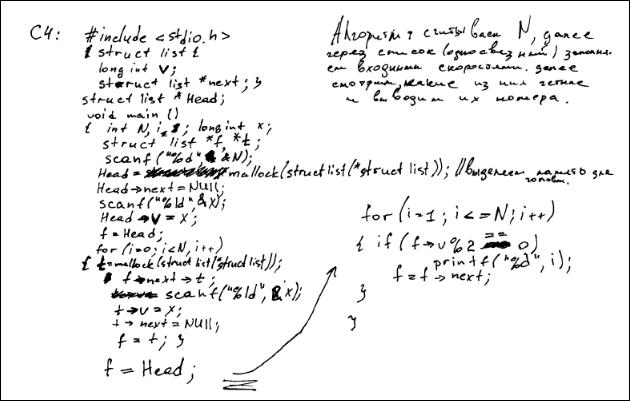 C4: #include <stdio.h>
{ struct list {
long int V;
struct list *next; }
struct list * Head;
void main ()
{ int N, i; long int x;
struct list *f, *t;
scanf ("%d", &N);
Head = mallock(struct list(*struct list)); // выделяем память для
головы.
Head→next = NULL;
scanf("%ld", &x);
Head→V = x;
f = Head;
for (i=0; i<N, i++)
{ t=mallock(struct list(*struct list));
f→next→t;
scanf("%ld", &x);
t→v = x;
t→next = NULL;
f = t; }
f = Head;
Алгоритм: считываем N, далее
через список (односвязный) заполня
ем входными скоростями. далее
смотрим, какие из них четные
и выводим их номера.
for (i=1; i<=N; i++)
{ if (f→v%2 == 0)
printf("%d", i);
f = f→next;
}
}